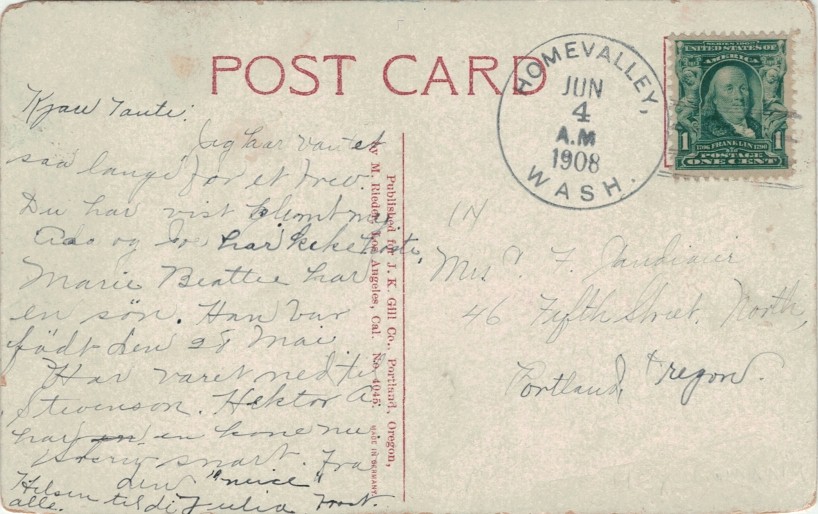 POST CARD
HOMEVALLEY,
JUN
4
A.M
1908
WASH.
SERIES 1902
UNITED STATES OF
AMERICA
1 1
FRANKLIN
POSTAGE
ONE CENT
Kjær Tante:
Jeg har ventet
saa lange for et brev.
Du har vist glemt mig.
Ada og har ikke
Marie Beattie har
en søn. Han var
født den 28 Mai
Har været ned til
Stevenson. Hektor A.
har en en kone nu.
smart. Fra
den "neice"
Hilsen til di Julia
alle.
Published for J. K. Gill Co., Portland, Oregon,
by M. Rieder, Los Angeles, Cal. No. 4045.
MADE IN GERMANY
Mrs. F.
46 Fifth Street North,
Portland, Oregon.